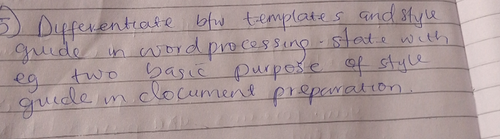 5) Differentiate b/w templates and style
guide in word processing - state with
eg two basic purpose of style
guide in document preparation.